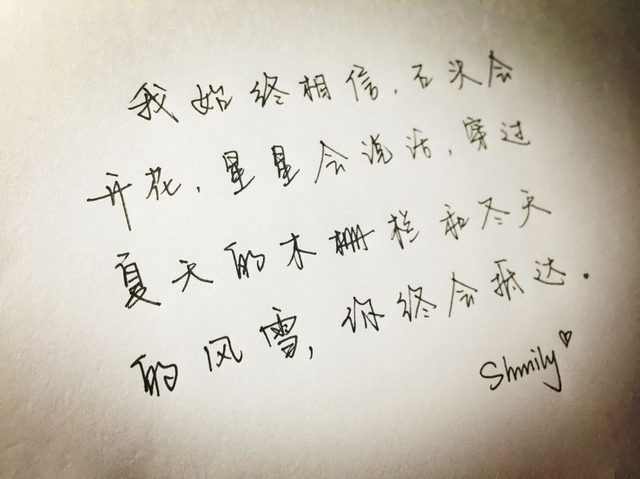 我始终相信，石头会
开花，星星会说话，穿过
夏天的木栅栏和冬天
的风雪，你终会抵达.
Shmily♡